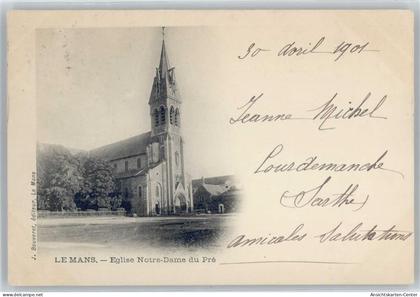 30 Avril 1901
Jeanne Michel
Lourdemanche
(Sarthe)
Amicales Salutations
LE MANS. — Eglise Notre-Dame du Pré
J. Bouveret, éditeur, Le Mans
www.ansichtskarten-center.de
Ansichtskarten-Center